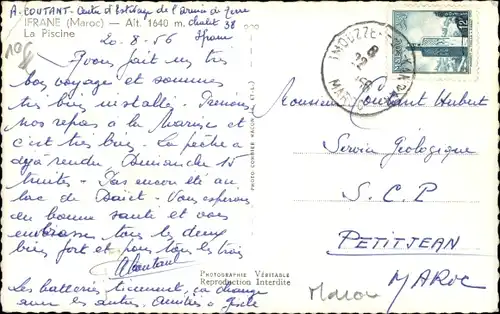 A. COUTANT - Centre d'Estivage de l'armée de Terre
IFRANE (Maroc) — Alt. 1640 m. chalet 38
La Piscine
20-8-56 Ifrane
Avons fait un très
bon voyage et sommes
très bien installés. Prenons
nos repas à la Marine et
c'est très bien. La pêche a
déjà rendu. Dimanche 15
truites - Pas encore été au
lac de Daiet - Vous espérons
en bonne santé et vous
embrasse tous les deux
bien fort et pour tous les trois
ACoutant
Les batteries tiennent, ça change
avec les autres. Amitiés à
PHOTOGRAPHIE VÉRITABLE
Reproduction Interdite
IMOUZZER
MAROC
MAROC
12F
Monsieur Coutant Hubert
Service Géologique
S. C. P
PETITJEAN
MAROC
Maroc